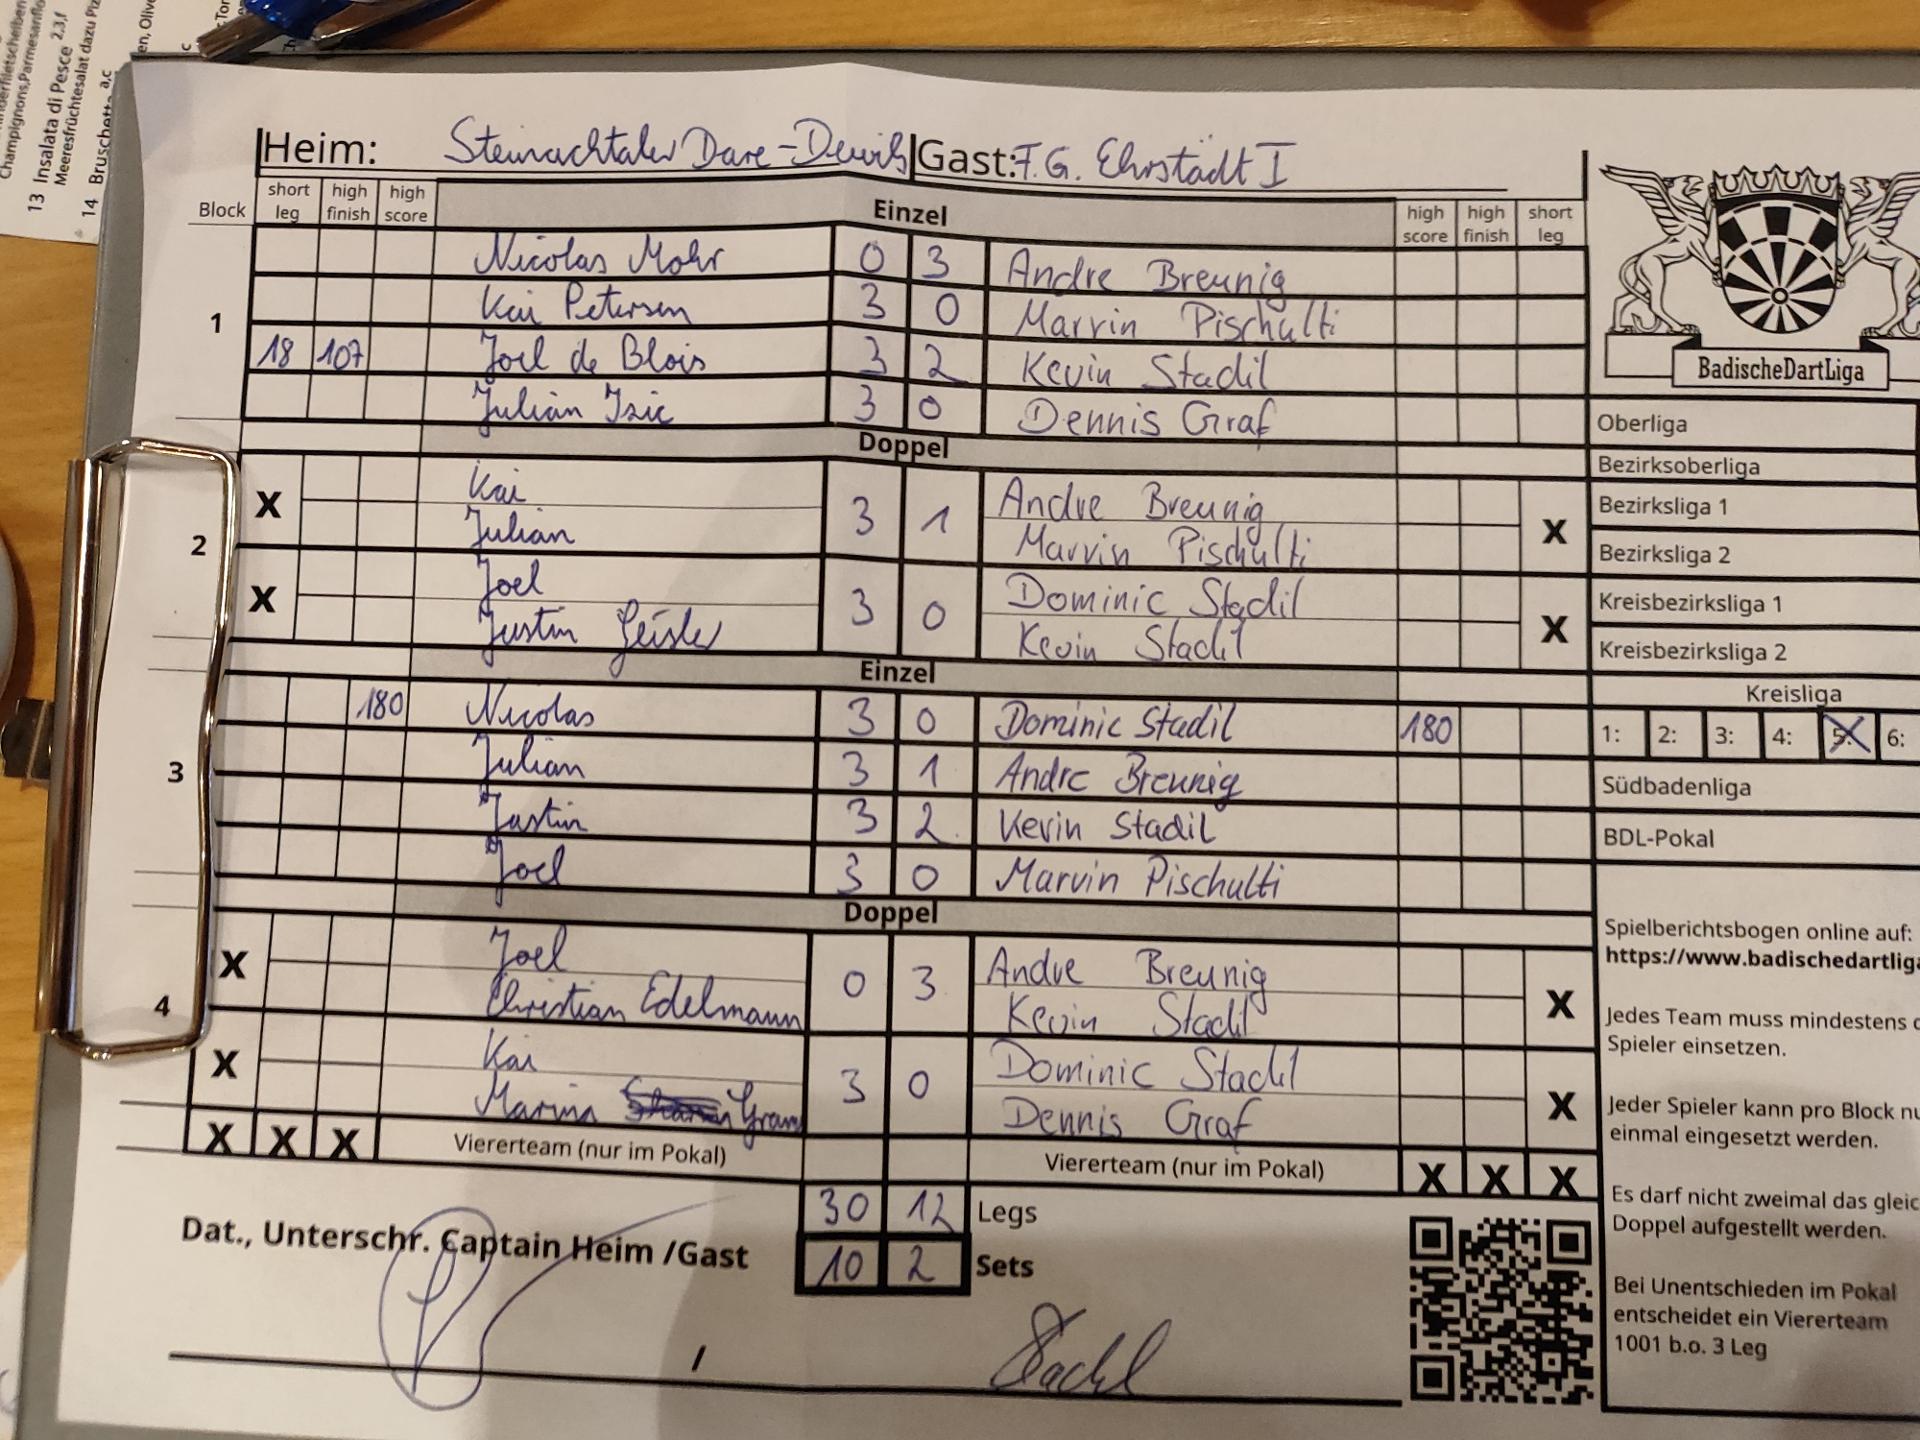 13 Insalata di Pesce 2,3,f
14 Bruschetta a,c
Heim: Steinachtaler Dare-Devils Gast: F.G. Ehrstädt I
Block short leg high finish high score Einzel high score high finish short leg
1
Nicolas Mohr 0 3 Andre Breunig
Kai Petersen 3 0 Marvin Pischulti
18 107 Joel de Blois 3 2 Kevin Stadil
Julian Isic 3 0 Dennis Graf
Doppel
2
X Kai 3 1 Andre Breunig X
Julian Marvin Pischulti
X Joel 3 0 Dominic Stadil X
Justin Geisler Kevin Stadil
Einzel
3
180 Nicolas 3 0 Dominic Stadil 180
Julian 3 1 Andre Breunig
Justin 3 2 Kevin Stadil
Joel 3 0 Marvin Pischulti
Doppel
4
X Joel 0 3 Andre Breunig X
Christian Edelmann Kevin Stadil
X Kai 3 0 Dominic Stadil X
Marina Dennis Graf
X X X Viererteam (nur im Pokal) Viererteam (nur im Pokal) X X X
30 12 Legs
10 2 Sets
Dat., Unterschr. Captain Heim /Gast
/
Stadil
BadischeDartLiga
Oberliga
Bezirksoberliga
Bezirksliga 1
Bezirksliga 2
Kreisbezirksliga 1
Kreisbezirksliga 2
Kreisliga
1: 2: 3: 4: 5: 6:
Südbadenliga
BDL-Pokal
Spielberichtsbogen online auf:
https://www.badischedartliga
Jedes Team muss mindestens
Spieler einsetzen.
Jeder Spieler kann pro Block nu
einmal eingesetzt werden.
Es darf nicht zweimal das gleic
Doppel aufgestellt werden.
Bei Unentschieden im Pokal
entscheidet ein Viererteam
1001 b.o. 3 Leg